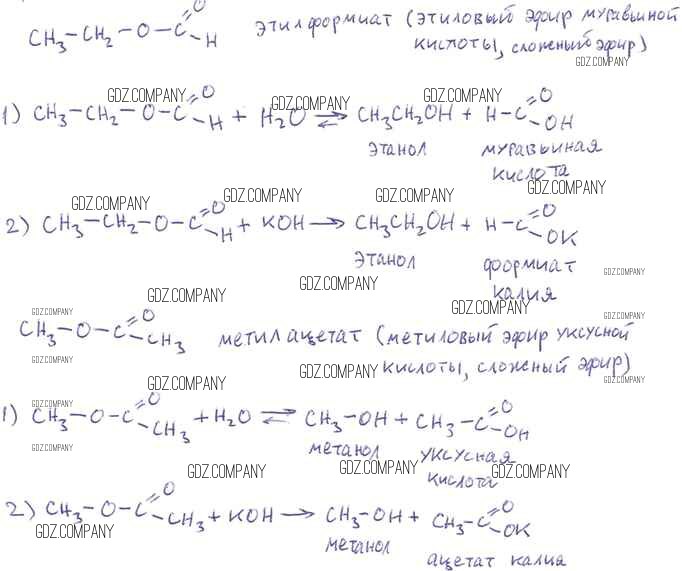 CH₃-CH₂-O-C=O-H этилформиат (этиловый эфир муравьиной
кислоты, сложный эфир)
GDZ.COMPANY
GDZ.COMPANY GDZ.COMPANY GDZ.COMPANY
1) CH₃-CH₂-O-C=O-H + H₂O ⇌ CH₃CH₂OH + H-C=O-OH
этанол муравьиная
кислота
GDZ.COMPANY GDZ.COMPANY GDZ.COMPANY GDZ.COMPANY
2) CH₃-CH₂-O-C=O-H + KOH → CH₃CH₂OH + H-C=O-OK
этанол формиат
калия
GDZ.COMPANY GDZ.COMPANY
GDZ.COMPANY GDZ.COMPANY
GDZ.COMPANY GDZ.COMPANY
CH₃-O-C=O-CH₃ метилацетат (метиловый эфир уксусной
кислоты, сложный эфир)
GDZ.COMPANY GDZ.COMPANY GDZ.COMPANY
GDZ.COMPANY GDZ.COMPANY
1) CH₃-O-C=O-CH₃ + H₂O ⇌ CH₃-OH + CH₃-C=O-OH
метанол уксусная
кислота
GDZ.COMPANY
GDZ.COMPANY GDZ.COMPANY GDZ.COMPANY
2) CH₃-O-C=O-CH₃ + KOH → CH₃-OH + CH₃-C=O-OK
метанол ацетат калия
GDZ.COMPANY